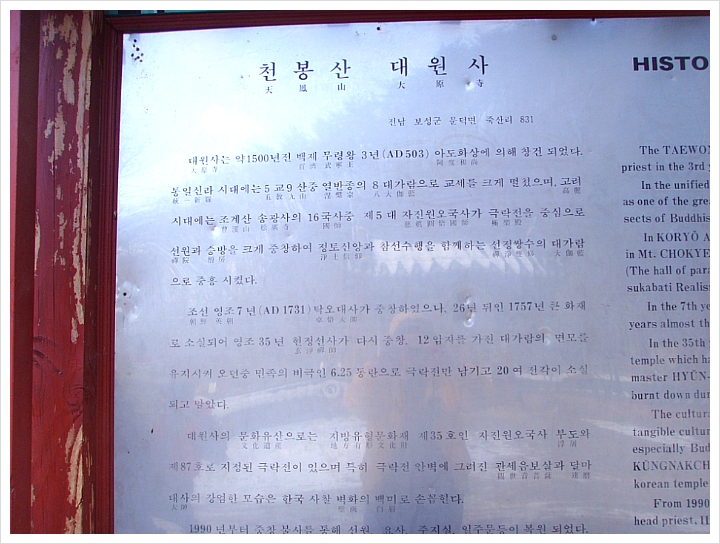 천봉산 대원사
天鳳山 大原寺
전남 보성군 문덕면 죽산리 831
대원사는 약1500년전 백제 무령왕 3년(AD503) 아도화상에 의해 창건 되었다.
大原寺 百濟 武寧王 阿度和尙
통일신라 시대에는 5교9산중 열반종의 8 대가람으로 교세를 크게 떨쳤으며, 고려
統一新羅 五敎九山 涅槃宗 八大伽藍 高麗
시대에는 조계산 송광사의 16국사중 제5대 자진원오국사가 극락전을 중심으로
曹溪山 松廣寺 國師 慈眞圓悟國師 極樂殿
선원과 승방을 크게 중창하여 정토신앙과 참선수행을 함께하는 선정쌍수의 대가람
禪院 僧房 淨土信仰 禪淨雙修 大伽藍
으로 중흥 시켰다.
조선 영조7년(AD1731) 탁오대사가 중창하였으나, 26년 뒤인 1757년 큰 화재
朝鮮 英祖 卓悟大師
로 소실되어 영조35년 현정선사가 다시 중창, 12암자를 가진 대가람의 면모를
玄淨禪師
유지시켜 오던중 민족의 비극인 6.25동란으로 극락전만 남기고 20여 전각이 소실
되고 말았다.
대원사의 문화유산으로는 지방유형문화재 제35호인 자진원오국사 부도와
文化遺産 地方有形文化財 浮屠
제87호로 지정된 극락전이 있으며 특히 극락전 안벽에 그려진 관세음보살과 달마
觀世音菩薩 達磨
대사의 장엄한 모습은 한국 사찰 벽화의 백미로 손꼽힌다.
大師 壁畵 白眉
1990년부터 중창 불사를 통해 선원, 요사, 주지실, 일주문등이 복원 되었다.
HISTO
The TAEWON
priest in the 3rd y
In the unified
as one of the grea
sects of Buddhis
In KORYŎ A
in Mt. CHOKYE
(The hall of para
sukabati Realism
In the 7th ye
years almost th
In the 35th
temple which ha
master HYŬN-
burnt down dur
The cultura
tangible cultur
especially Bud
KŬNGNAKCH
korean temple
From 1990
head priest, H